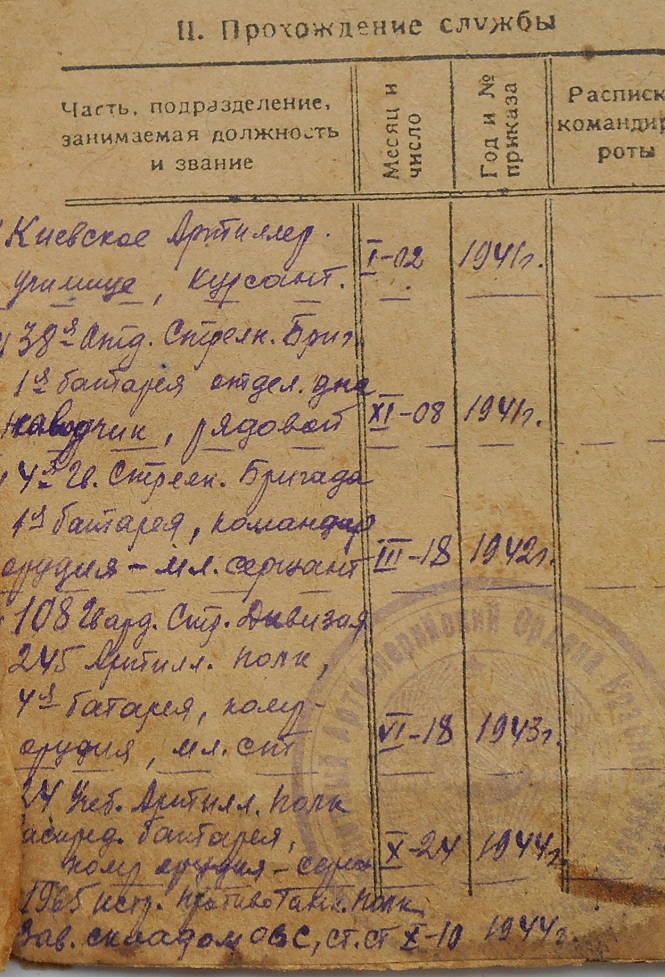 II. Прохождение службы
Часть, подразделение, занимаемая должность и звание
Месяц и число
Год и № приказа
Расписк
командир
роты
Киевское Артиллер.
училище, курсант. I-02 1941г.
38я Отд. Стрелк. Бриг.
1я батарея отдел. дна
наводчик, рядовой XI-08 1941г.
4я Гв. Стрелк. Бригада
1я батарея, командир
орудия - мл. сержант III-18 1942г.
108 Гвард. Стр. Дивизая
245 Артилл. полк,
4я батарея, ком.
орудия, мл. с-т VI-18 1943г.
24 Учеб. Артилл. полк
батарея,
ком. орудия - серж X-24 1944г.
1965 истр. Противотанк. полк
Зав. складом ОВС, ст. с-т X-10 1944г.
Артиллерийский Ордена Красно